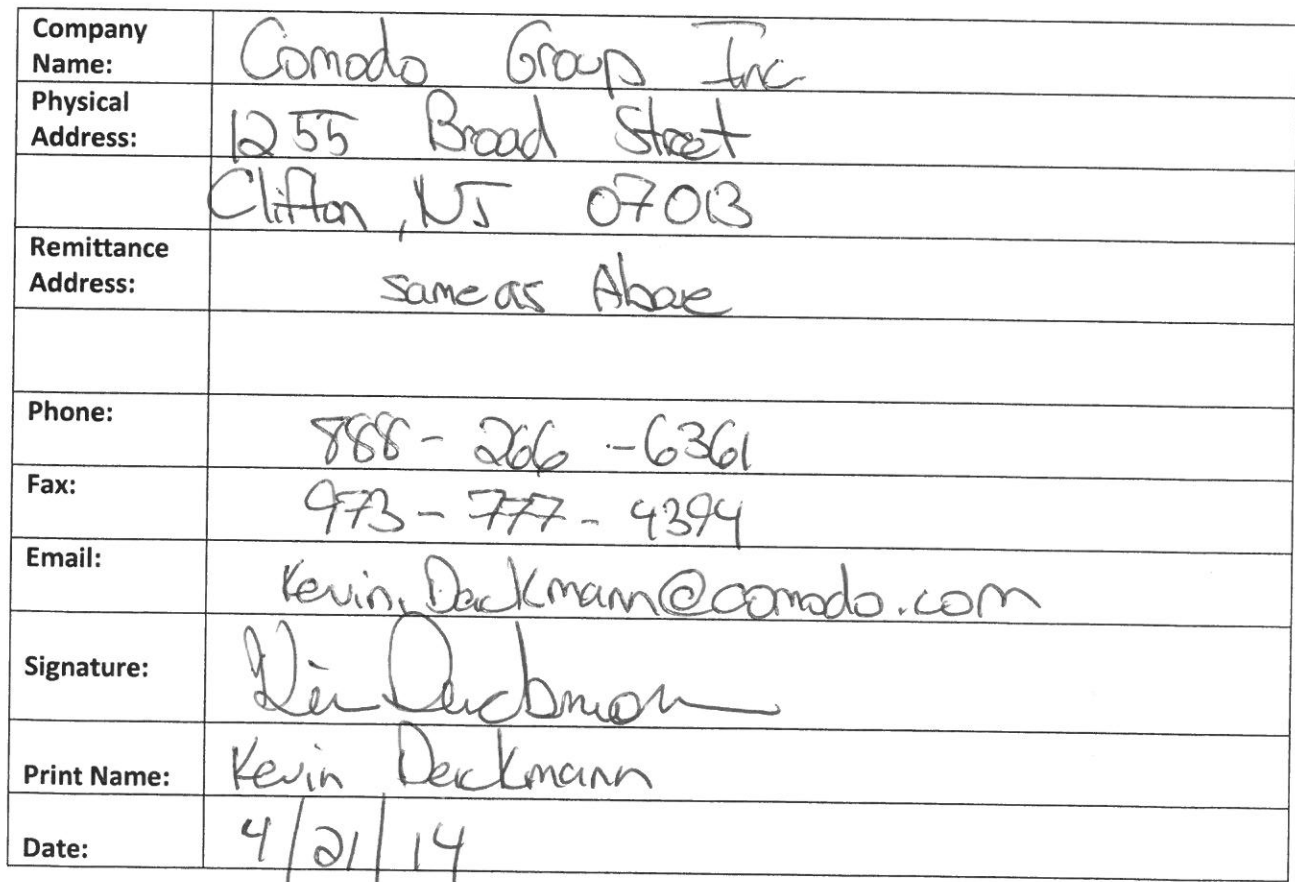 Company
Name:
Comodo Group Inc
Physical
Address:
1255 Broad Street
Clifton, NJ 07013
Remittance
Address:
same as Above
Phone:
888-266-6361
Fax:
973-777-4394
Email:
Kevin.Deckmann@comodo.com
Signature:
Print Name:
Kevin Deckmann
Date:
4/21/14